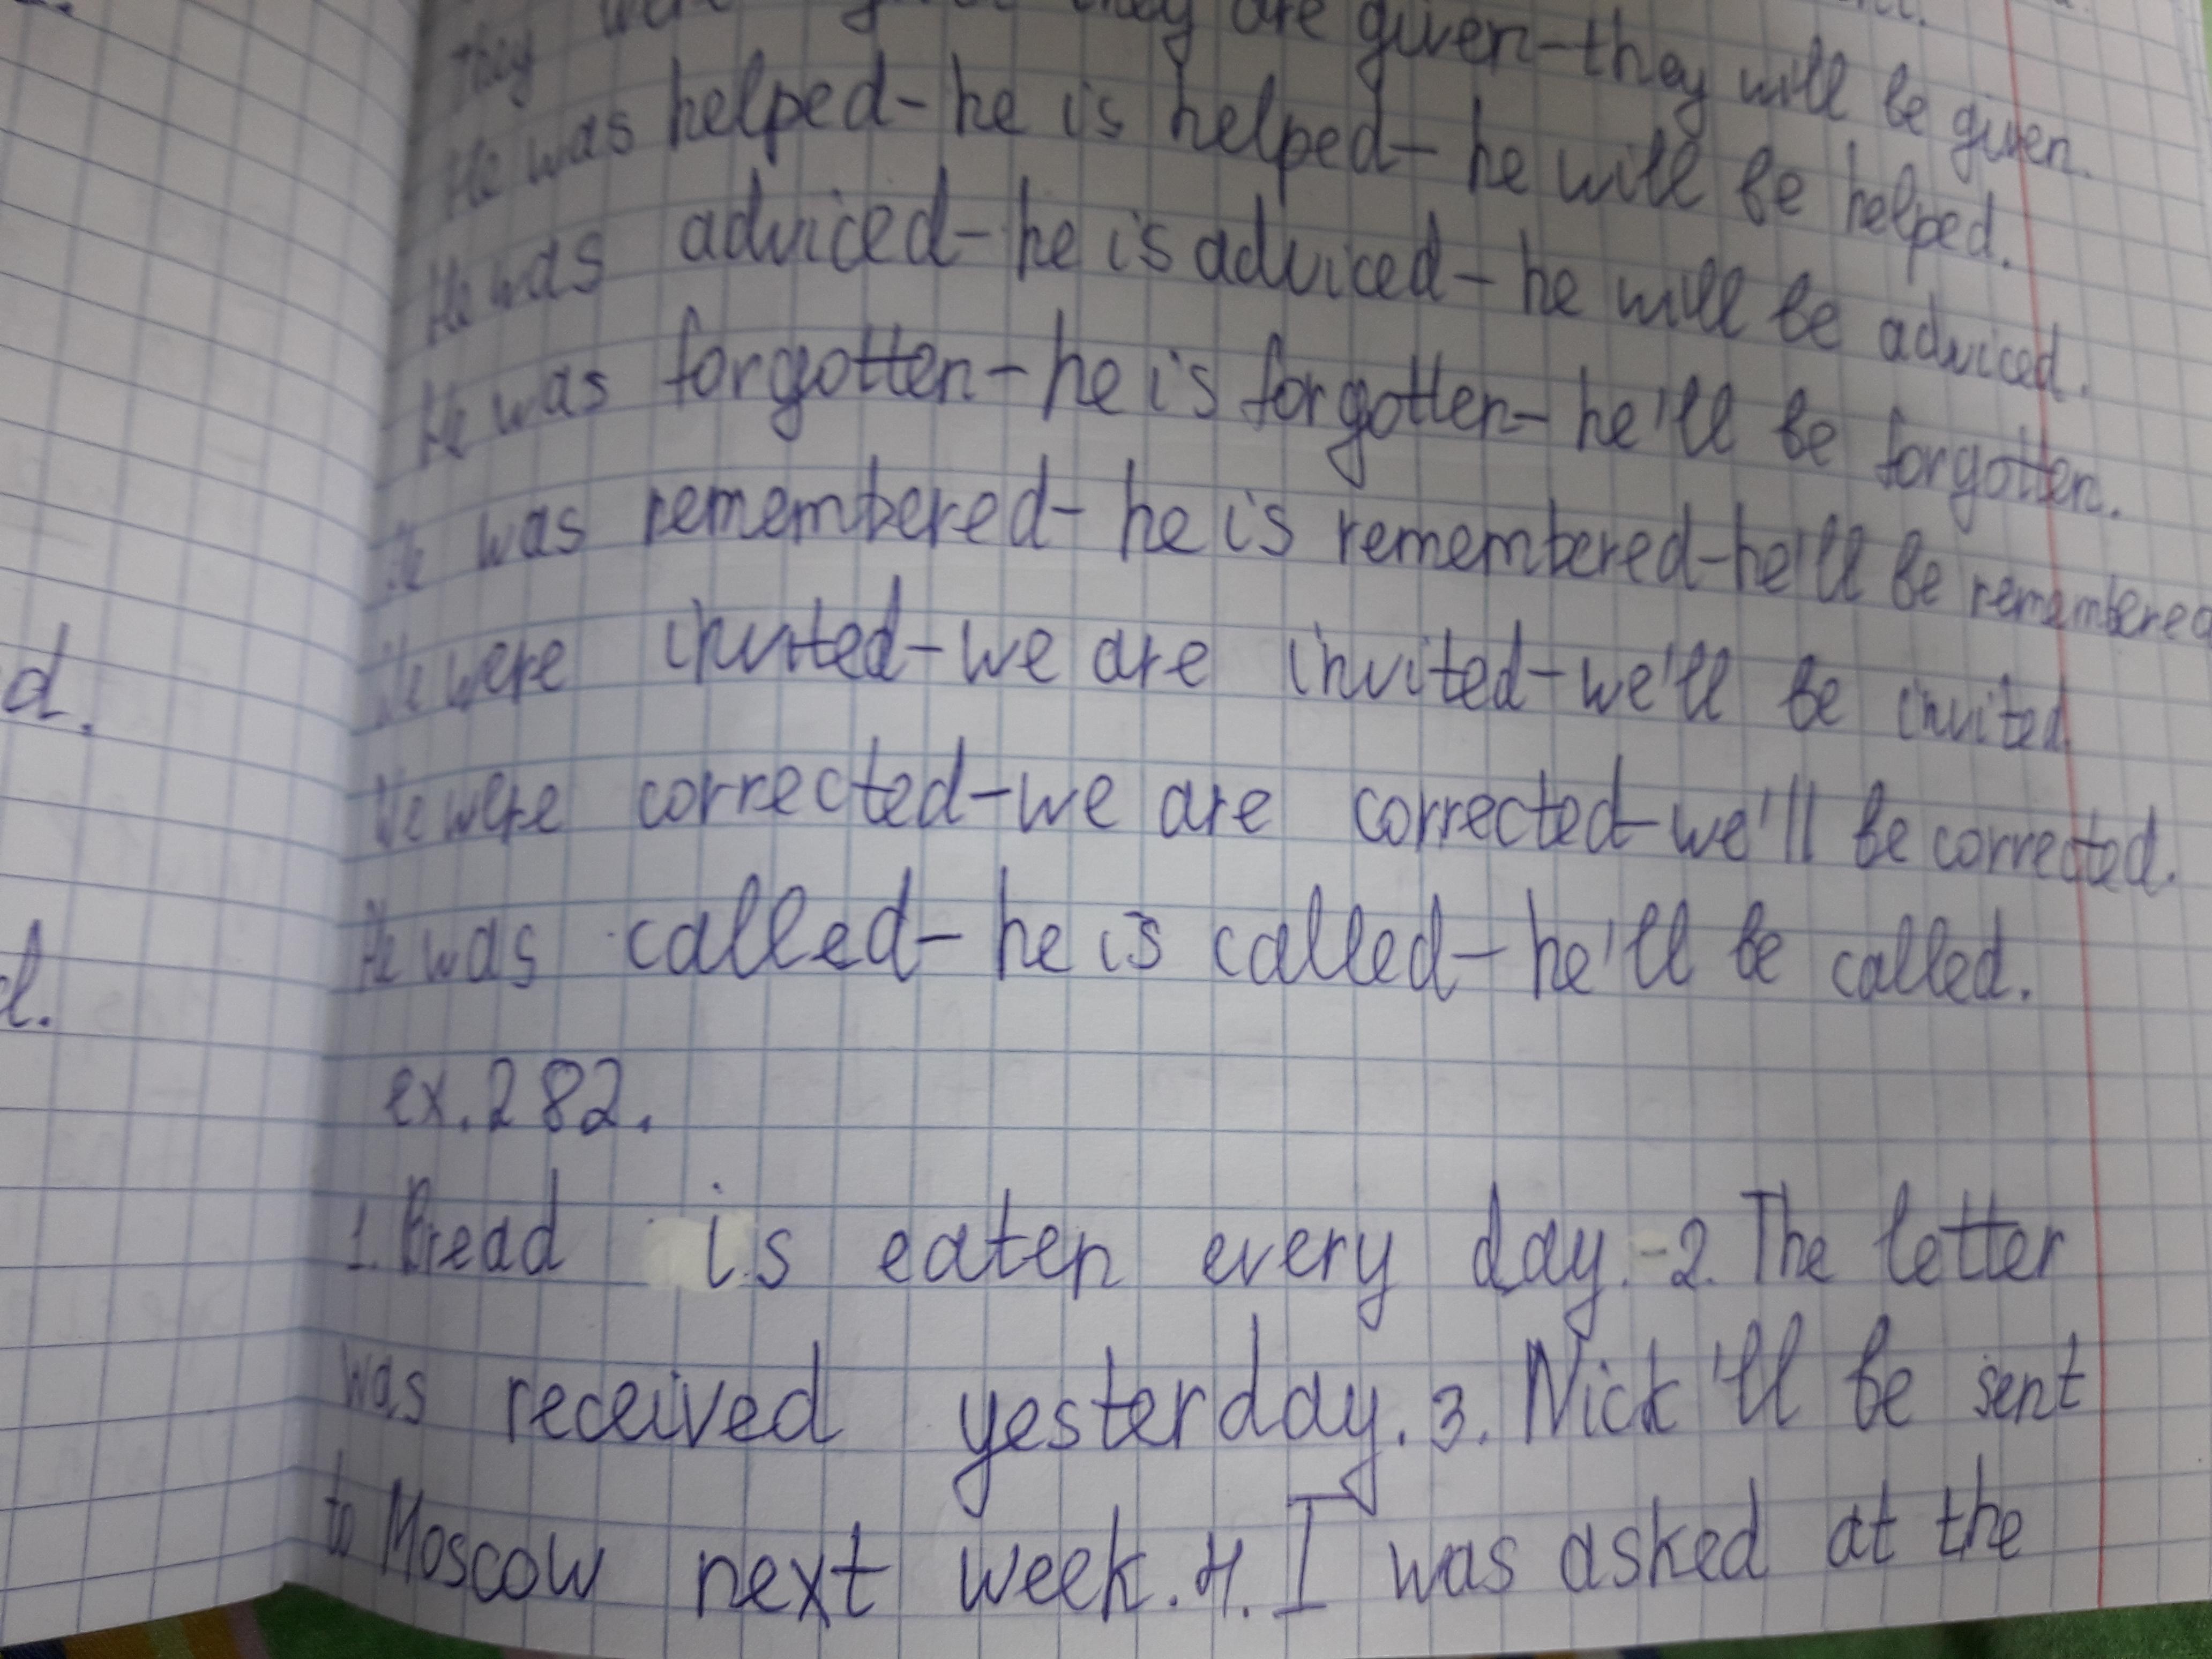 They were they are given-they will be given.
He was helped-he is helped-he will be helped.
He was adviced-he is adviced-he will be adviced.
He was forgotten-he is forgotten-he'll be forgotten.
He was remembered-he is remembered-he'll be remembered
We were invited-we are invited-we'll be invited
We were corrected-we are corrected-we'll be corrected.
He was called-he is called-he'll be called.
ex.282.
1. Bread is eaten every day.-2. The letter
was received yesterday. 3. Nick'll be sent
to Moscow next week. 4. I was asked at the
d.
d.